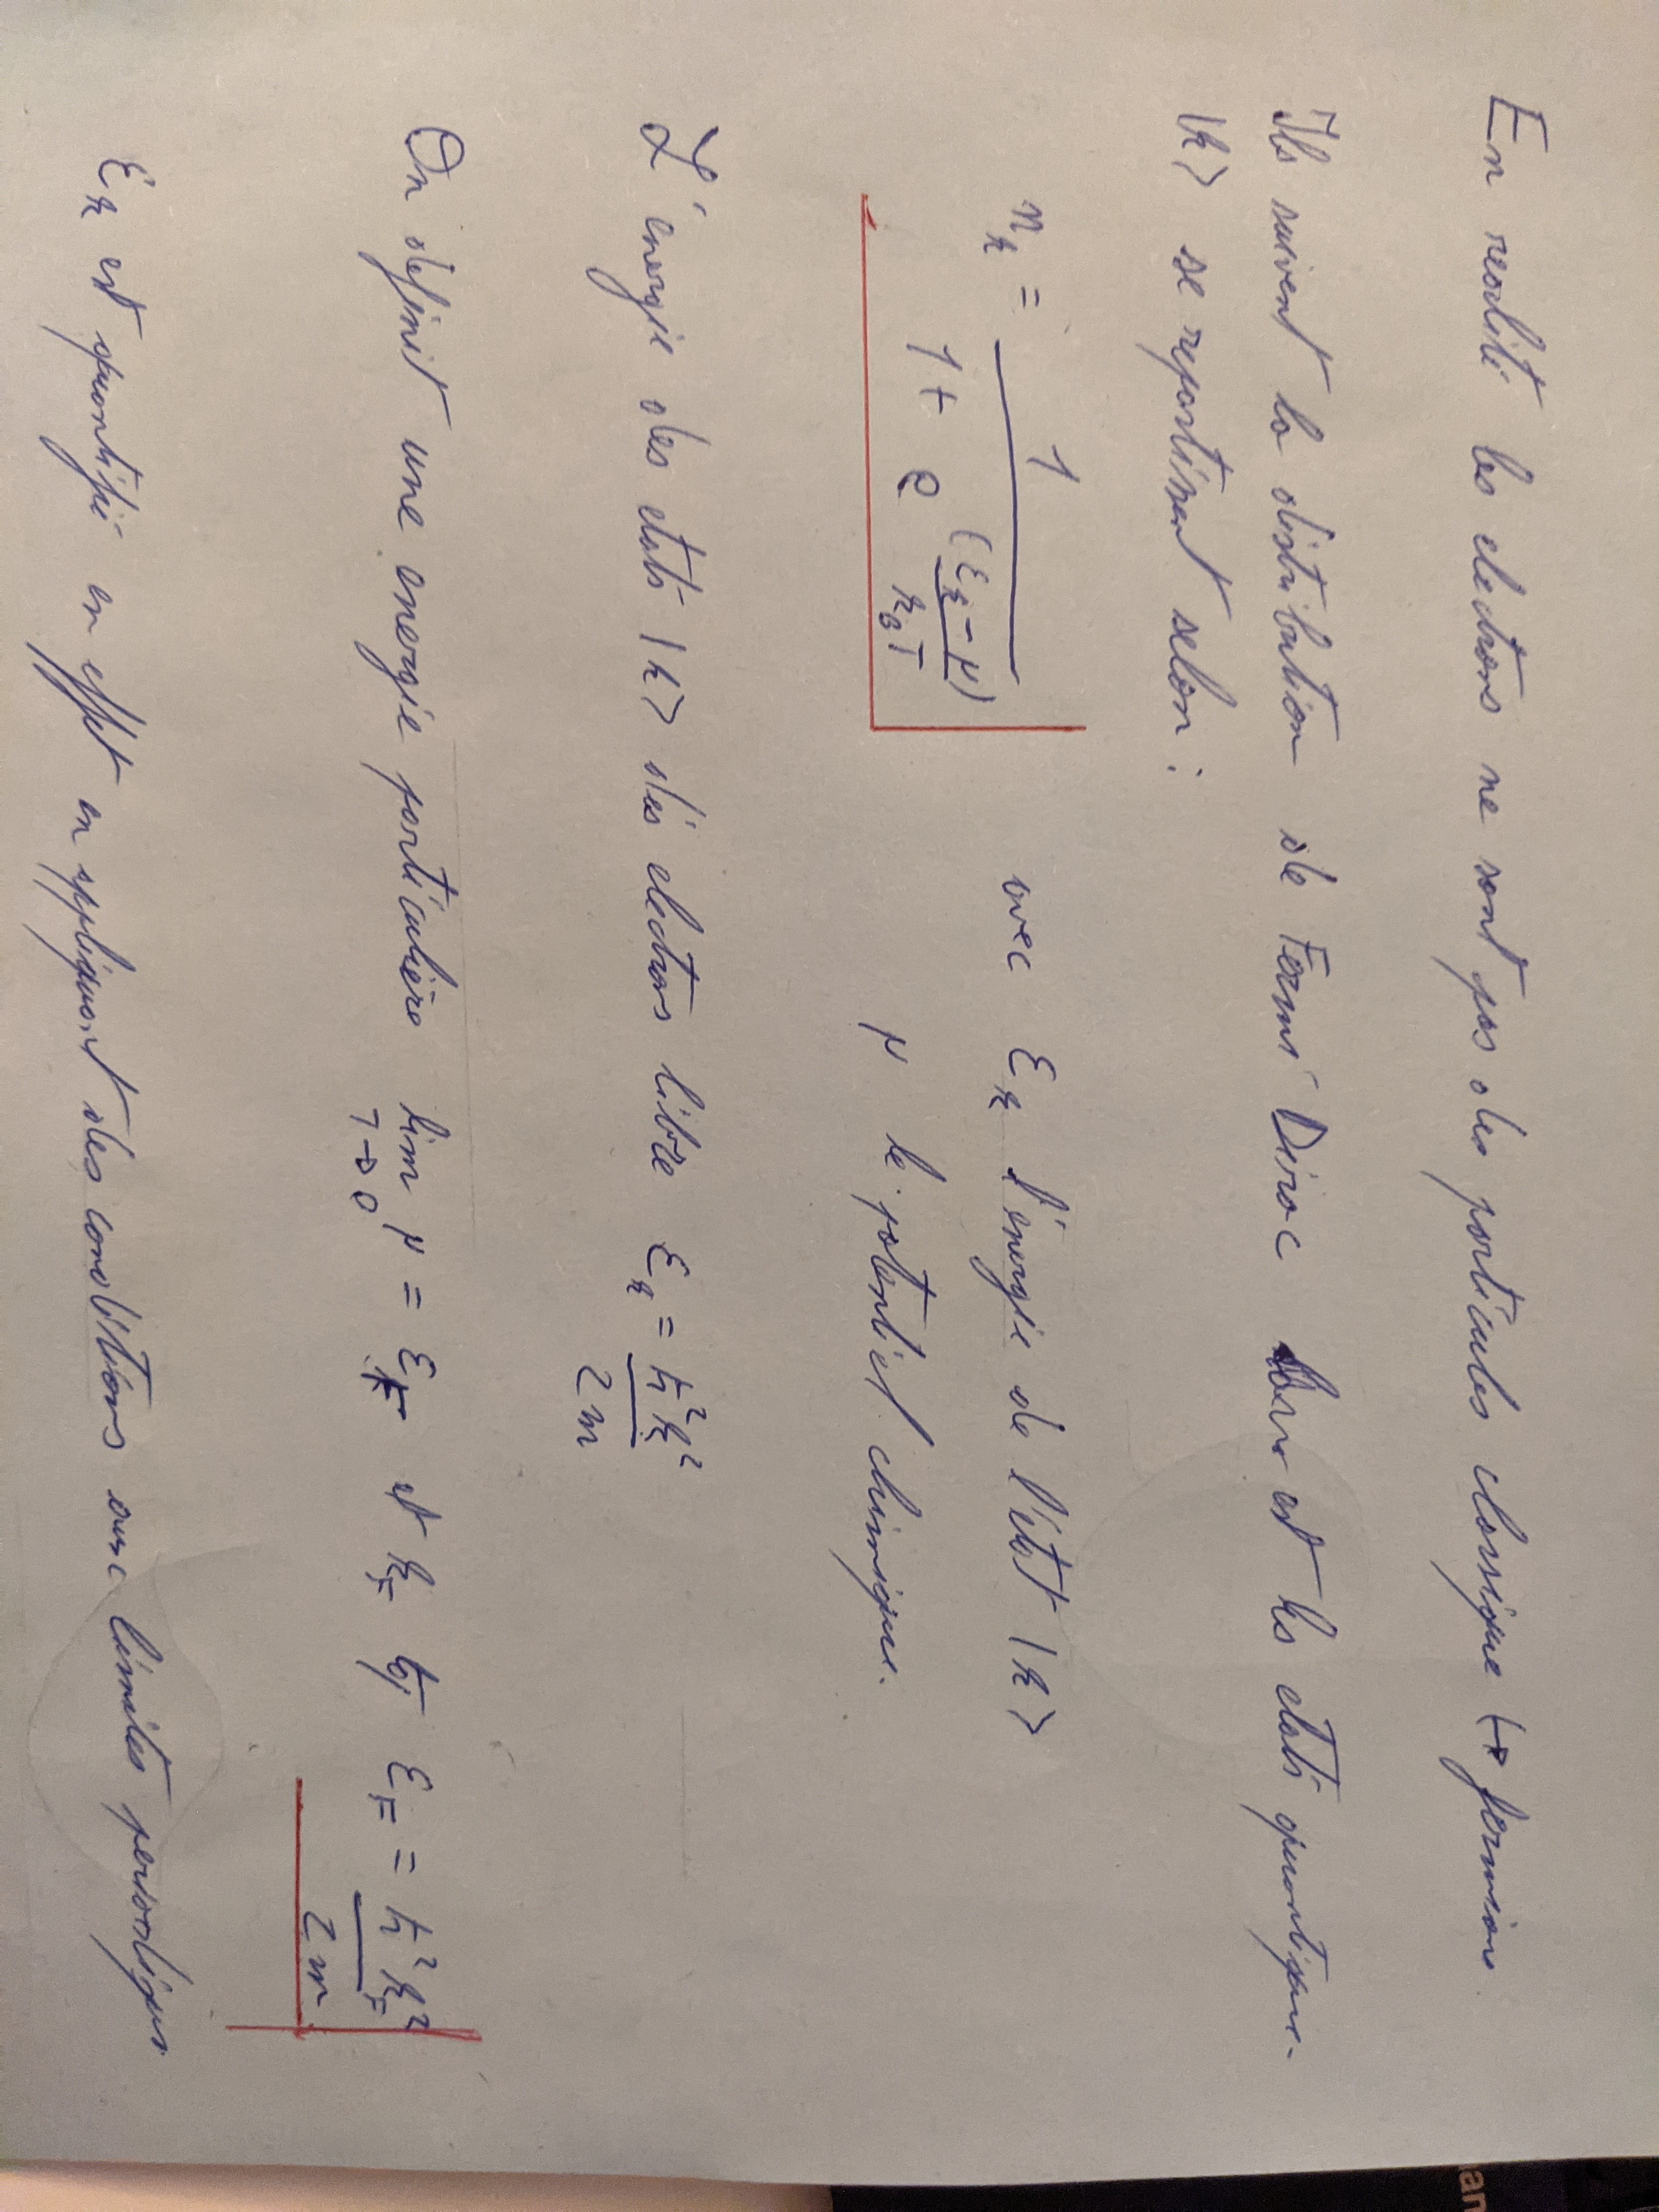 En realité les electrons ne sont pas des particules classique (→ fermion.
Ils suivent la distribution de Fermi Dirac est les etats quantique.
|k> se repartissent selon :
n_k = 1 / (1 + e^((ε_k - μ) / k_B T))
avec ε_k l'énergie de l'état |k>
μ le potentiel chimique.
L'energie des etats |k> des electrons libre ε_k = ħ²k² / 2m
On definit une energie particulière lim_{T→0} μ = ε_F et k_F tq ε_F = ħ²k_F² / 2m
ε_k est quantifié en effet en appliquant des conditions aux limites periodiques
an